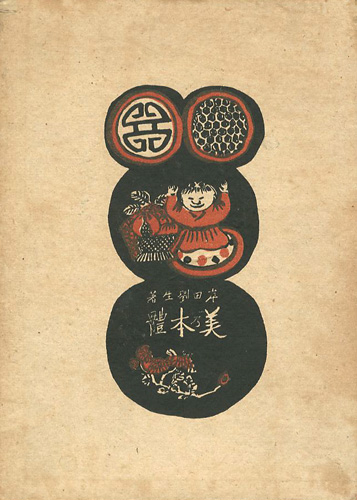 岸田劉生著
美の本體